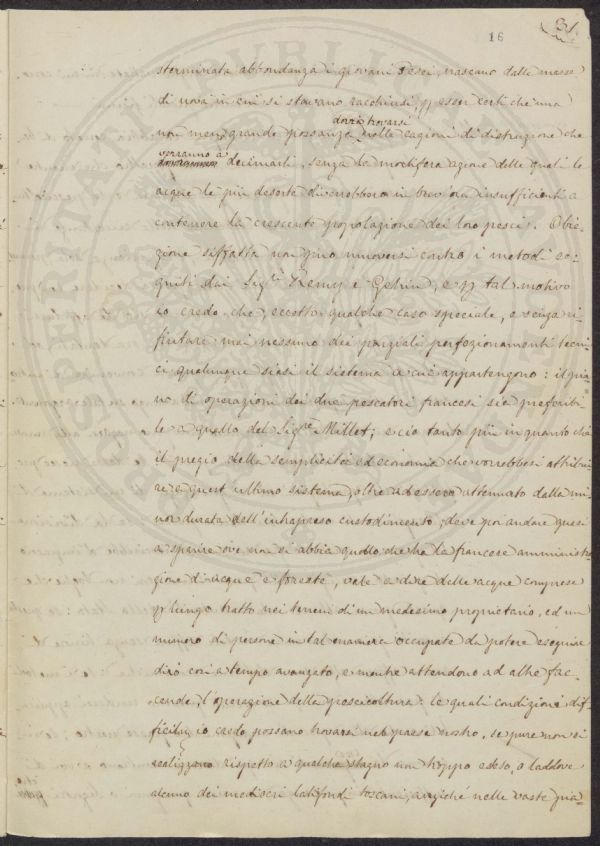 16
31
sterminata abbondanza i giovani Pesci, nascano dalle masse
di uova in cui si stavano racchiusi, p esser certi che una
non men grande possanza dovrà trovarsi nelle cagioni di distruzione che
verranno a decimarli, senza la mortifera azione delle quali le
acque le più deserte diverrebbero in brev'ora insufficienti a
contenere la crescente popolazione dei loro pesci. Obie-
zione siffatta non può muoversi contro i metodi se-
guiti dai Sigri Remy e Gehin, e p tal motivo
io credo che, eccetto qualche caso speciale, e senza ri-
fiutare mai nessuno dei parziali perfezionamenti tecni-
ci qualunque siasi il sistema a cui appartengono: il pia-
no di operazioni dei due pescatori francesi sia preferibi-
le a quello del Sigre Millet; e ciò tanto più in quanto chè
il pregio della semplicità ed economia che vorrebbesi attribui-
re a quest'ultimo sistema, oltre ad essere attenuato dalla mi-
nor durata dell'intrapreso custodimento, deve poi andare quasi
a sparire ove non si abbia quello che ha la francese amministra-
zione di acque e foreste, vale a dire delle acque comprese
p lungo tratto nei terreni di un medesimo proprietario, ed un
numero di persone in tal maniera occupate da potere eseguire
dirò così a tempo avanzato, e mentre attendono ad altre fac-
cende, l'operazione della pescicoltura: le quali condizioni dif-
ficilmente io credo possano trovarsi nel paese nostro, se pure non si
realizzano rispetto a qualche stagno non troppo esteso, o laddove
alcuno dei mediocri latifondi toscani, anziché nelle vaste pia-